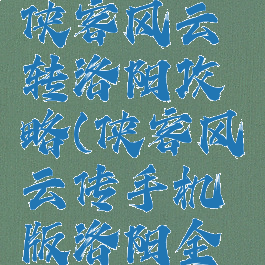 侠客风云
转洛阳攻
略(侠客风
云传手机
版洛阳全